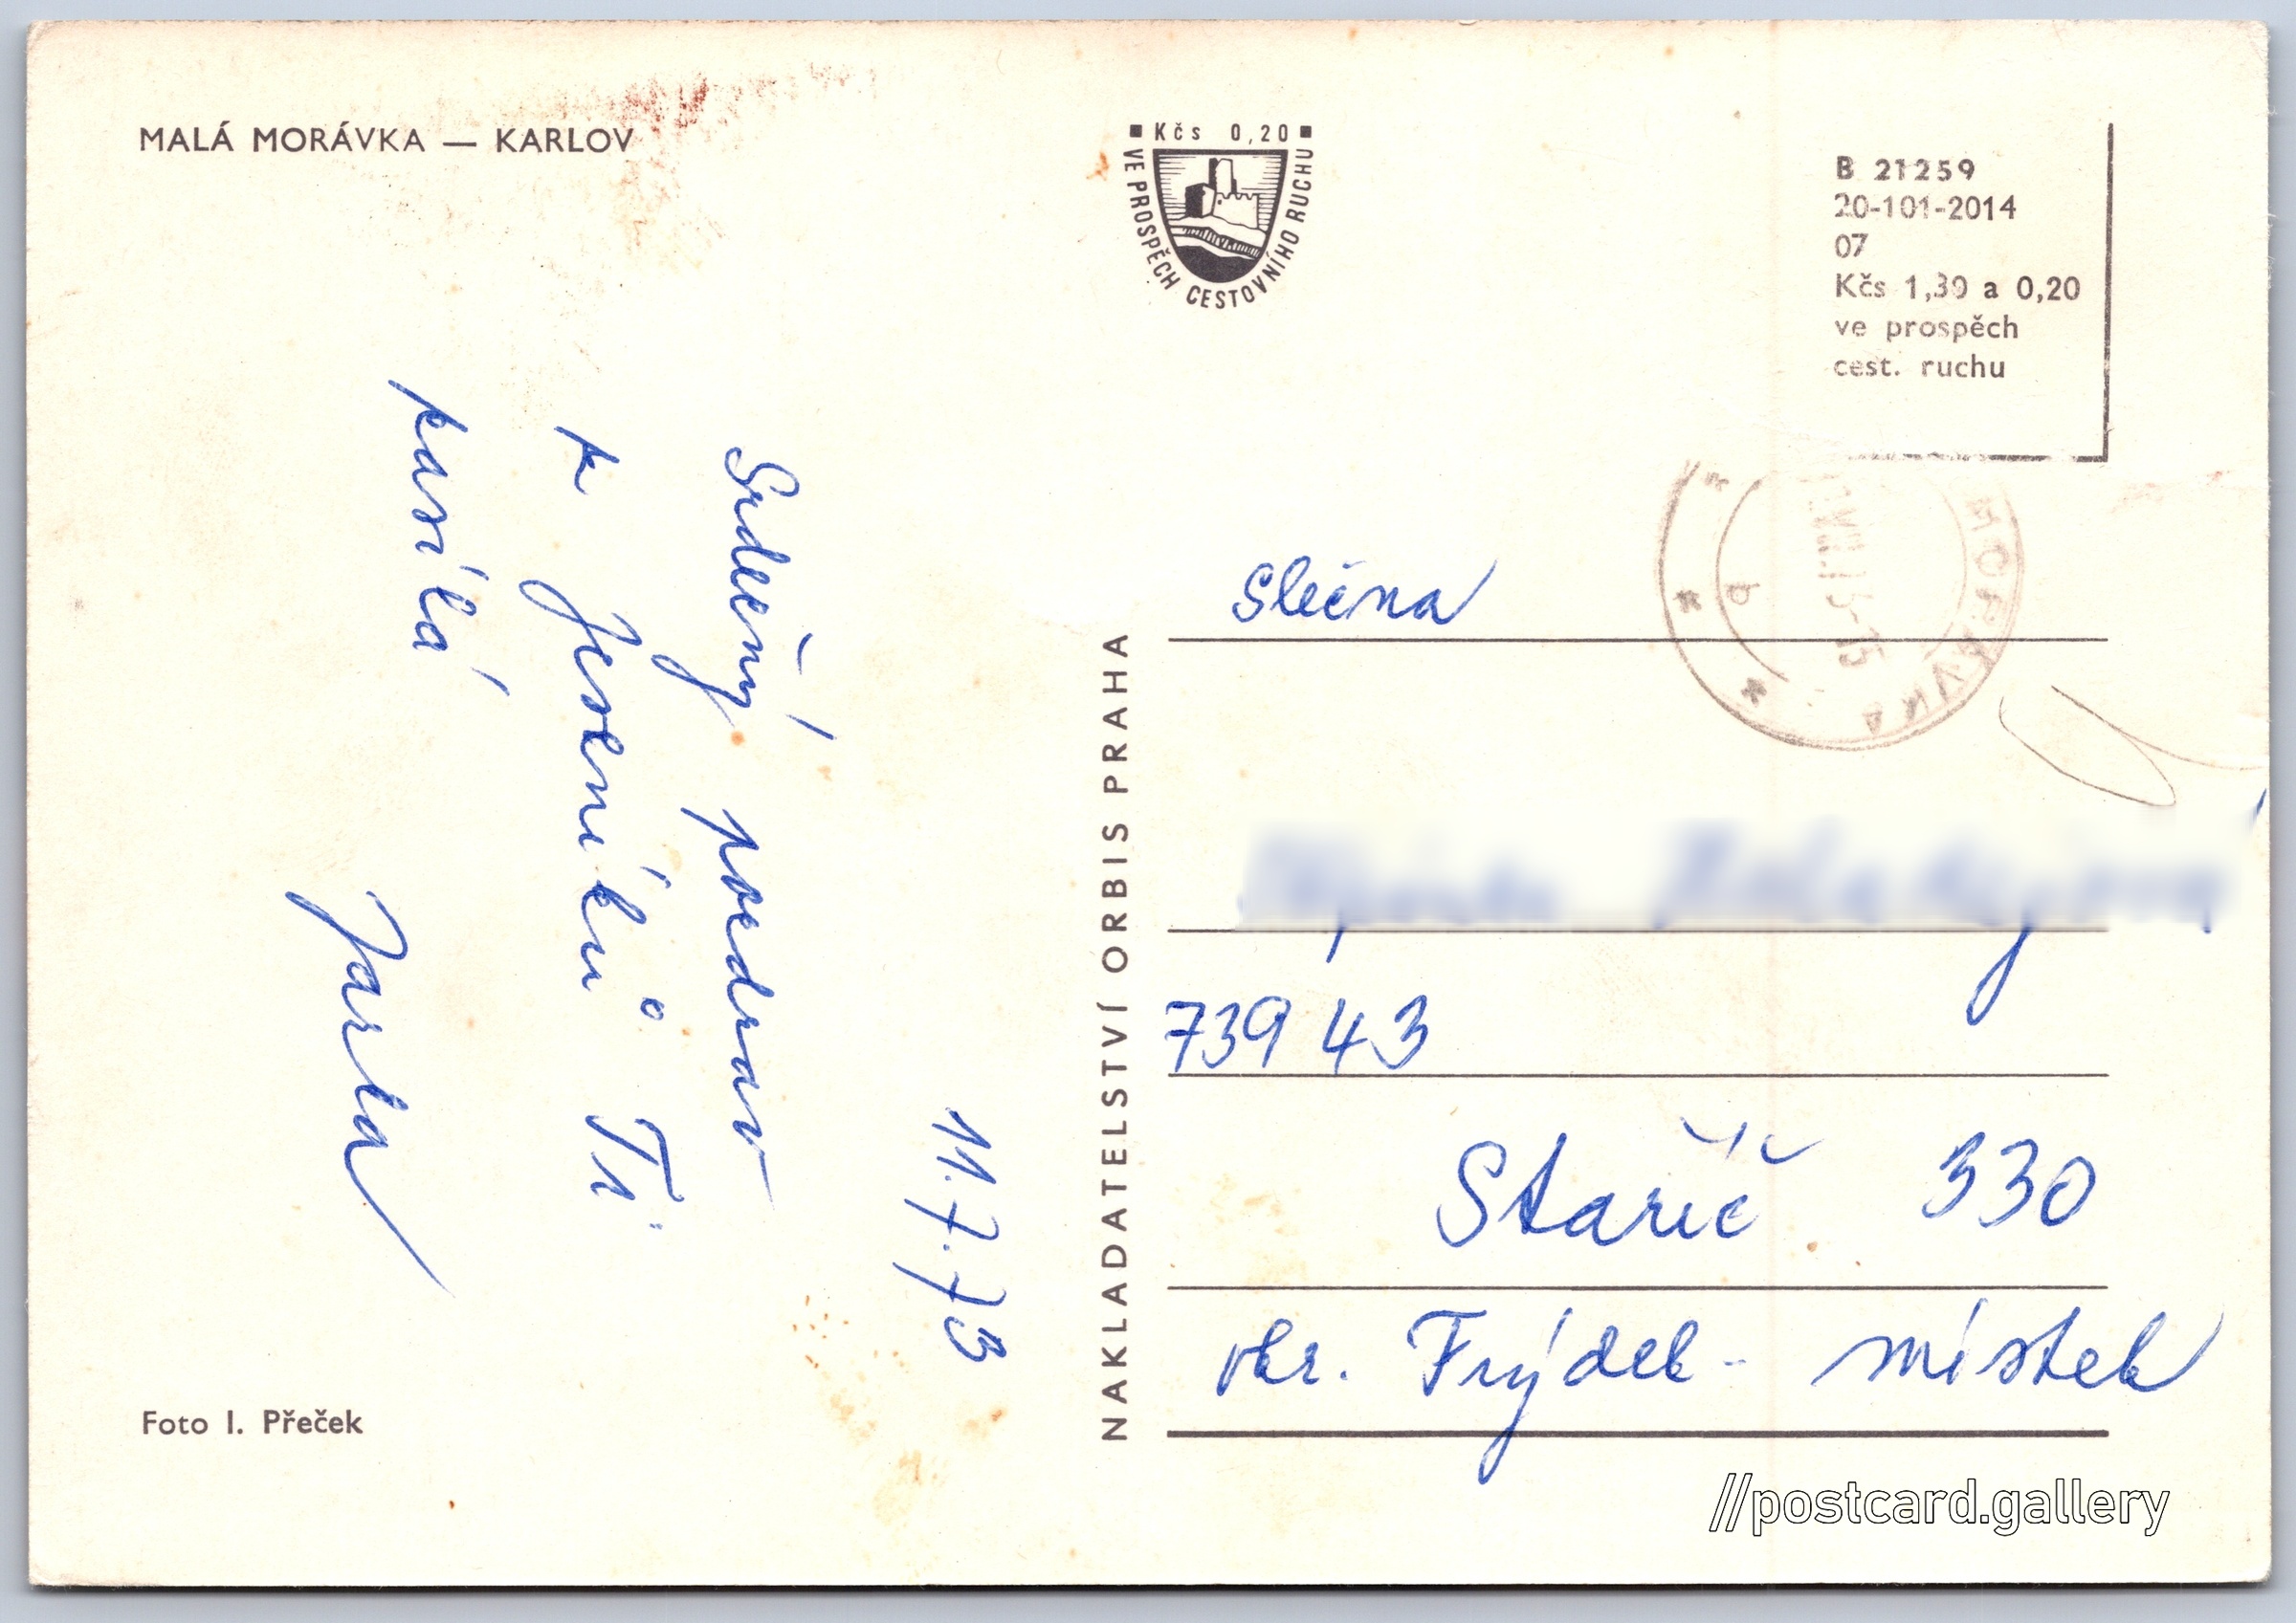 MALÁ MORÁVKA — KARLOV
11.7.73
Srdečný pozdrav
z Jeseníků Ti
posílá
Jarka
Foto I. Přeček
NAKLADATELSTVÍ ORBIS PRAHA
Kčs 0,20
VE PROSPĚCH CESTOVNÍHO RUCHU
B 21259
20-101-2014
07
Kčs 1,30 a 0,20
ve prospěch
cest. ruchu
MORÁVKA
Slečna
739 43
Staříč 330
okr. Frýdek - místek
//postcard.gallery